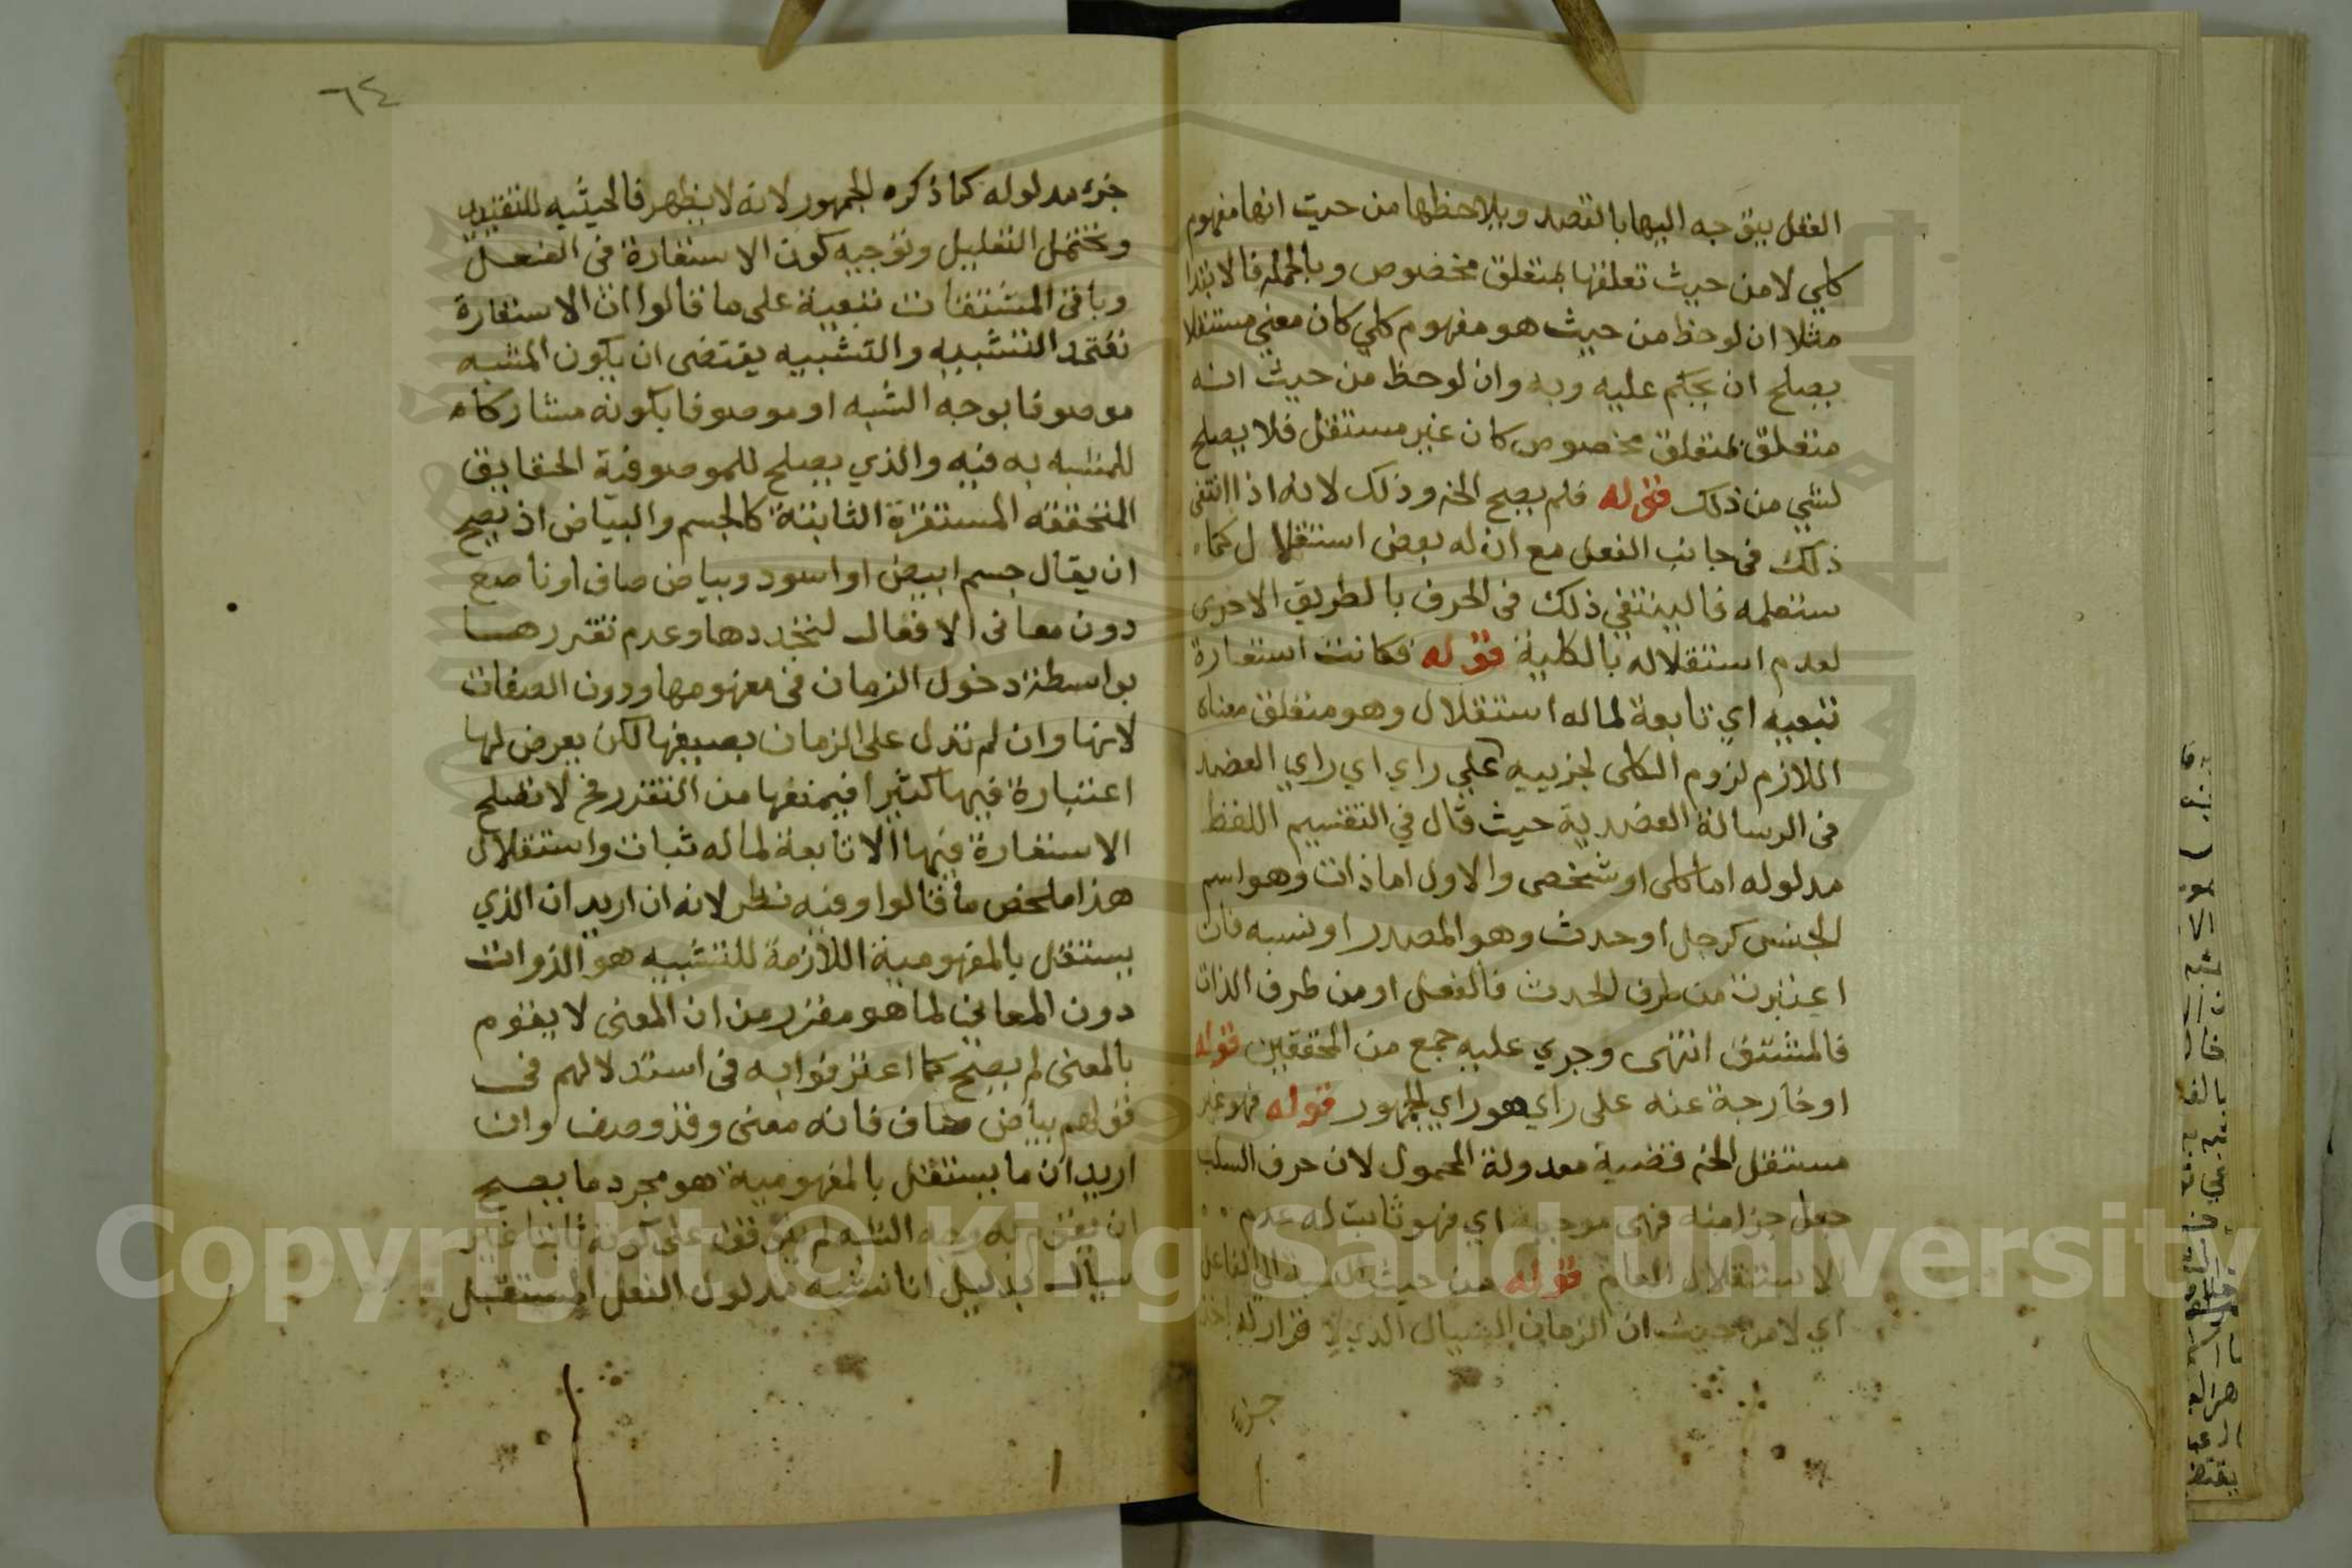 العقل يتوجه اليها بالقصد ويلاحظها من حيث انها مفهوم
كلي لا من حيث تعلقها بمتعلق مخصوص وبالجملة فالابتدا
مثلا ان لوحظ من حيث هو مفهوم كلي كان معني مستقلا
يصلح ان يحكم عليه وبه وان لوحظ من حيث انه
متعلق بمتعلق مخصوص كان غير مستقل فلا يصلح
لشي من ذلك قوله فلم يصح الخ وذلك لانه اذا انتفى
ذلك في جانب الفعل مع ان له بعض استقلال كما
ستعلمه فالينتفي ذلك في الحرف بالطريق الاحرى
لعدم استقلاله بالكلية قوله فكانت استعارة
تبعيه اي تابعة لماله استقلال وهو متعلق معناه
اللازم لزوم الكلى لجزييه علي راي اي راي العضد
في الرسالة العضدية حيث قال في التقسيم اللفظ
مدلوله اما كلى او شخصى والاول اما ذات وهو اسم
الجنس كرجل او حدث وهو المصدر او نسبه فان
اعتبرت من طرف الحدث فالفعل او من طرف الذات
فالمشتق انتهى وجري عليه جمع من المحققين قوله
او خارجة عنه على راي هو راي الجمهور قوله فهو غير
مستقل الخ قضية معدولة المحمول لان حرف السلب
جعل جزا منه فهى موجبة اي فهو ثابت له عدم
الاستقلال العام قوله من حيث النسبة الي الفاعل
اي لا من حيث ان الزمان السيال الذي لا قرار له
جزء
٦٤
جزء مدلوله كما ذكره الجمهور لانه لا يظهر فالحيثيه للتقييد
وتحتمل التعليل وتوجيه كون الاستعارة في الفعل
وباقي المشتقات تبعية على ما قالوا ان الاستعارة
تعتمد التشبيه والتشبيه يقتضى ان يكون المشبه
موصوفا بوجه الشبه او موصوفا بكونه مشاركا
للمشبه به فيه والذي يصلح للموصوفية الحقايق
المتحققه المستقرة الثابتة كالجسم والبياض اذ يصح
ان يقال جسم ابيض او اسود وبياض صاف او ناصع
دون معانى الافعال لتجددها وعدم تقررها
بواسطة دخول الزمان في مفهومها ودون الصفات
لانها وان لم تدل على الزمان بصيغها لكن يعرض لها
اعتبارة فيها كثيرا فيمنعها من التقرر فح لا تصلح
الاستعارة فيها الا تابعة لماله ثبات واستقلال
هذا ملخص ما قالوا وفيه نظر لانه ان اريد ان الذي
يستقل بالمفهومية اللازمة للتشبيه هو الذوات
دون المعاني لما هو مقرر من ان المعنى لا يقوم
بالمعنى لم يصح كما اعترفوا به في استدلالهم في
قولهم بياض صاف فانه معنى وقد وصف وان
اريد ان ما يستقل بالمفهومية هو مجرد ما يصح
ان يقوم به وجه الشبه لم يتوقف على كونه ثابتا غير
سيال بدليل انا نشبه مدلول الفعل المستقبل